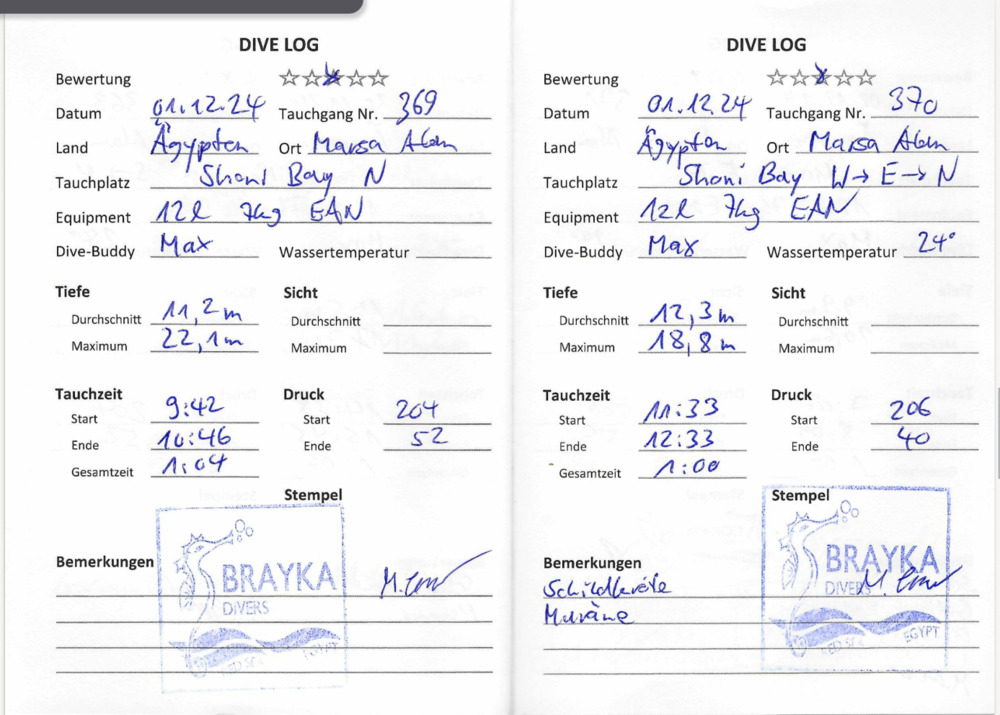 DIVE LOG
Bewertung ☆☆☆☆☆
Datum 01.12.24 Tauchgang Nr. 369
Land Ägypten Ort Marsa Alam
Tauchplatz Shoni Bay N
Equipment 12l 7kg EAN
Dive-Buddy Max Wassertemperatur
Tiefe Sicht
Durchschnitt 11,2m Durchschnitt
Maximum 22,1m Maximum
Tauchzeit Druck
Start 9:42 Start 204
Ende 10:46 Ende 52
Gesamtzeit 1:04
Stempel
BRAYKA
DIVERS
RED SEA EGYPT
Bemerkungen
DIVE LOG
Bewertung ☆☆☆☆☆
Datum 01.12.24 Tauchgang Nr. 370
Land Ägypten Ort Marsa Alam
Tauchplatz Shoni Bay W→E→N
Equipment 12l 7kg EAN
Dive-Buddy Max Wassertemperatur 24°
Tiefe Sicht
Durchschnitt 12,3m Durchschnitt
Maximum 18,8m Maximum
Tauchzeit Druck
Start 11:33 Start 206
Ende 12:33 Ende 40
Gesamtzeit 1:00
Stempel
BRAYKA
DIVERS
RED SEA EGYPT
Bemerkungen
Schildkröte
Muräne